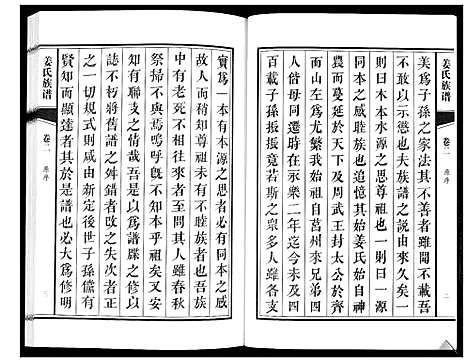 姜氏族谱
卷二
原序
二
美爲子孫之家法其不善者雖聞不載吾
不敢以示懲也夫族譜之說由來久矣一
則曰本木水源之思一則曰尊祖敬宗之
同本之感睦族也追憶其始姜氏始自神
農而蔓延於天下及周武王封太公於齊
而山左尤甚焉吾始祖自萬州兄弟四
人偕母同遷時在永樂二年迄今五
百載子孫振振竟若斯之衆多人雖各其
實爲一本有本源之思者必有同本之感
故人而知尊祖未有不睦族者也吾族
中有老死不相往來者同本之人雖春秋
祭掃不與焉嗚呼既不知本又安
知有聯支之情哉吾是以爲譜牒之修
誌不朽將舊譜之舛錯者正之失次者正
之一切規式則咸由新定後世子孫儻有
賢知而顯達者其於是譜也必大爲修明
姜氏族谱
卷二
原序
三